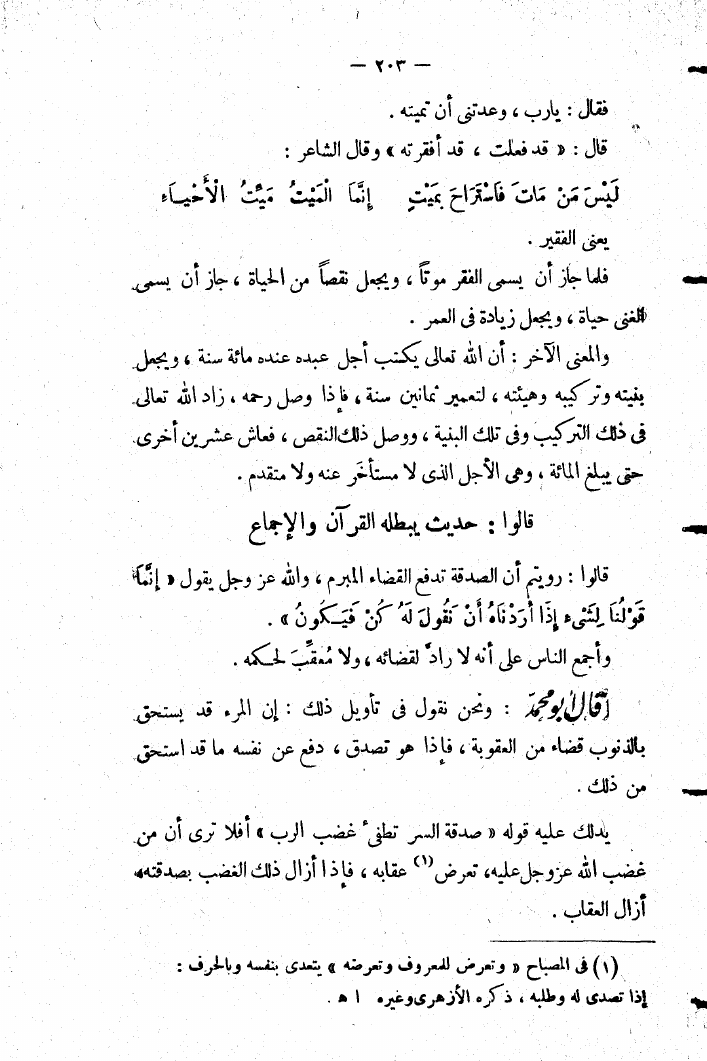 — ٢٠٣ —
فقال : يارب ، وعدتنى أن تميته .
قال : « قد فعلت ، قد أفقرته » وقال الشاعر :
لَيْسَ مَنْ مَاتَ فَاسْتَرَاحَ بِمَيْتٍ إِنَّمَا الْمَيْتُ مَيِّتُ الْأَحْيَاءِ
يعنى الفقير .
فلما جاز أن يسمى الفقر موتاً ، ويجعل نقصاً من الحياة ، جاز أن يسمى
الغنى حياة ، ويجعل زيادة فى العمر .
والمعنى الآخر : أن الله تعالى يكتب أجل عبده عنده مائة سنة ، ويجعل
بنيته وتركيبه وهيئته ، لتعمير ثمانين سنة ، فإذا وصل رحمه ، زاد الله تعالى
فى ذلك التركيب وفى تلك البنية ، ووصل ذلك النقص ، فعاش عشرين أخرى
حتى يبلغ المائة ، وهى الأجل الذى لا مستأخَر عنه ولا متقدم .
قالوا : حديث يبطله القرآن والإجماع
قالوا : رويتم أن الصدقة تدفع القضاء المبرم ، والله عز وجل يقول « إِنَّمَا
قَوْلُنَا لِشَىْءٍ إِذَا أَرَدْنَاهُ أَنْ نَقُولَ لَهُ كُنْ فَيَكُونُ » .
وأجمع الناس على أنه لا رادّ لقضائه ، ولا مُعقِّبَ لحكمه .
قال أبو محمد : ونحن نقول فى تأويل ذلك : إن المرء قد يستحق
بالذنوب قضاء من العقوبة ، فإذا هو تصدق ، دفع عن نفسه ما قد استحق
من ذلك .
يدلك عليه قوله « صدقة السر تطفىء غضب الرب » أفلا ترى أن من
غضب الله عزوجل عليه، تعرض (١) عقابه ، فإذا أزال ذلك الغضب بصدقته
أزال العقاب .
(١) فى المصباح « وتعرض للمعروف وتعرضه » يتعدى بنفسه وبالحرف :
إذا تصدى له وطلبه ، ذكره الأزهرى وغيره ا ه .